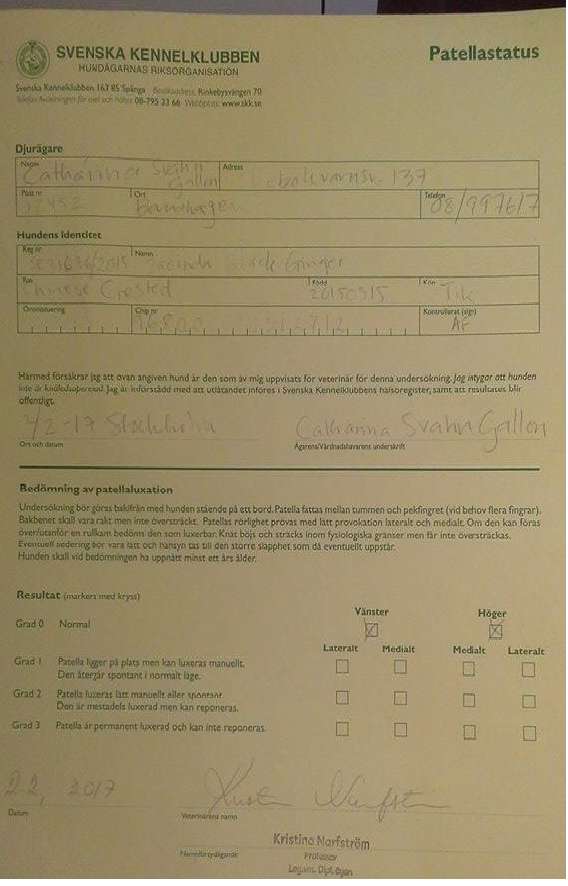 SVENSKA KENNELKLUBBEN
HUNDÄGARNAS RIKSORGANISATION
Patellastatus
Svenska Kennelklubben 163 85 Spånga Besöksadress Rinkebysvängen 70
08-795 23 66 Webbplats www.skk.se
Djurägare
Namn Adress
Catharina Svahn Gallon 137
Post nr Ort Telefon
08/997617
Hundens identitet
Reg nr Namn
Ginger
Ras Född Kön
Chinese Crested 20150515 Tik
Öronmärkning Chip nr Kontrollerat (sign)
AF
Härmed försäkrar jag att ovan angiven hund är den som av mig uppvisats för veterinär för denna undersökning. Jag intygar att hunden
inte är knäledsopererad. Jag är införstådd med att utlåtandet införes i Svenska Kennelklubbens hälsoregister, samt att resultatet blir
offentligt.
2/2-17 Stockholm Catharina Svahn Gallon
Ort och datum Ägarens/Vårdnadshavarens underskrift
Bedömning av patellaluxation
Undersökning bör göras bakifrån med hunden stående på ett bord. Patella fattas mellan tummen och pekfingret (vid behov flera fingrar).
Bakbenet skall vara rakt men inte översträckt. Patellas rörlighet prövas med lätt provokation lateralt och medialt. Om den kan föras
över/utanför en rullkam bedöms den som luxerbar. Knäs böjs och sträcks inom fysiologiska gränser men får inte översträckas.
Eventuell sedering bör vara lätt och hänsyn tas till den större slapphet som då eventuellt uppstår.
Hunden skall vid bedömningen ha uppnått minst ett års ålder.
Resultat (markera med kryss)
Vänster Höger
Grad 0 Normal
Lateralt Medialt Medialt Lateralt
Grad 1 Patella ligger på plats men kan luxeras manuellt.
Den återgår spontant i normalt läge.
Grad 2 Patella luxeras lätt manuellt eller spontant.
Den är mestadels luxerad men kan reponeras.
Grad 3 Patella är permanent luxerad och kan inte reponeras.
2 2, 2017
Datum Veterinärens namn
Kristina Narfström
Namnförtydligande Professor
Legvet. Dipl.